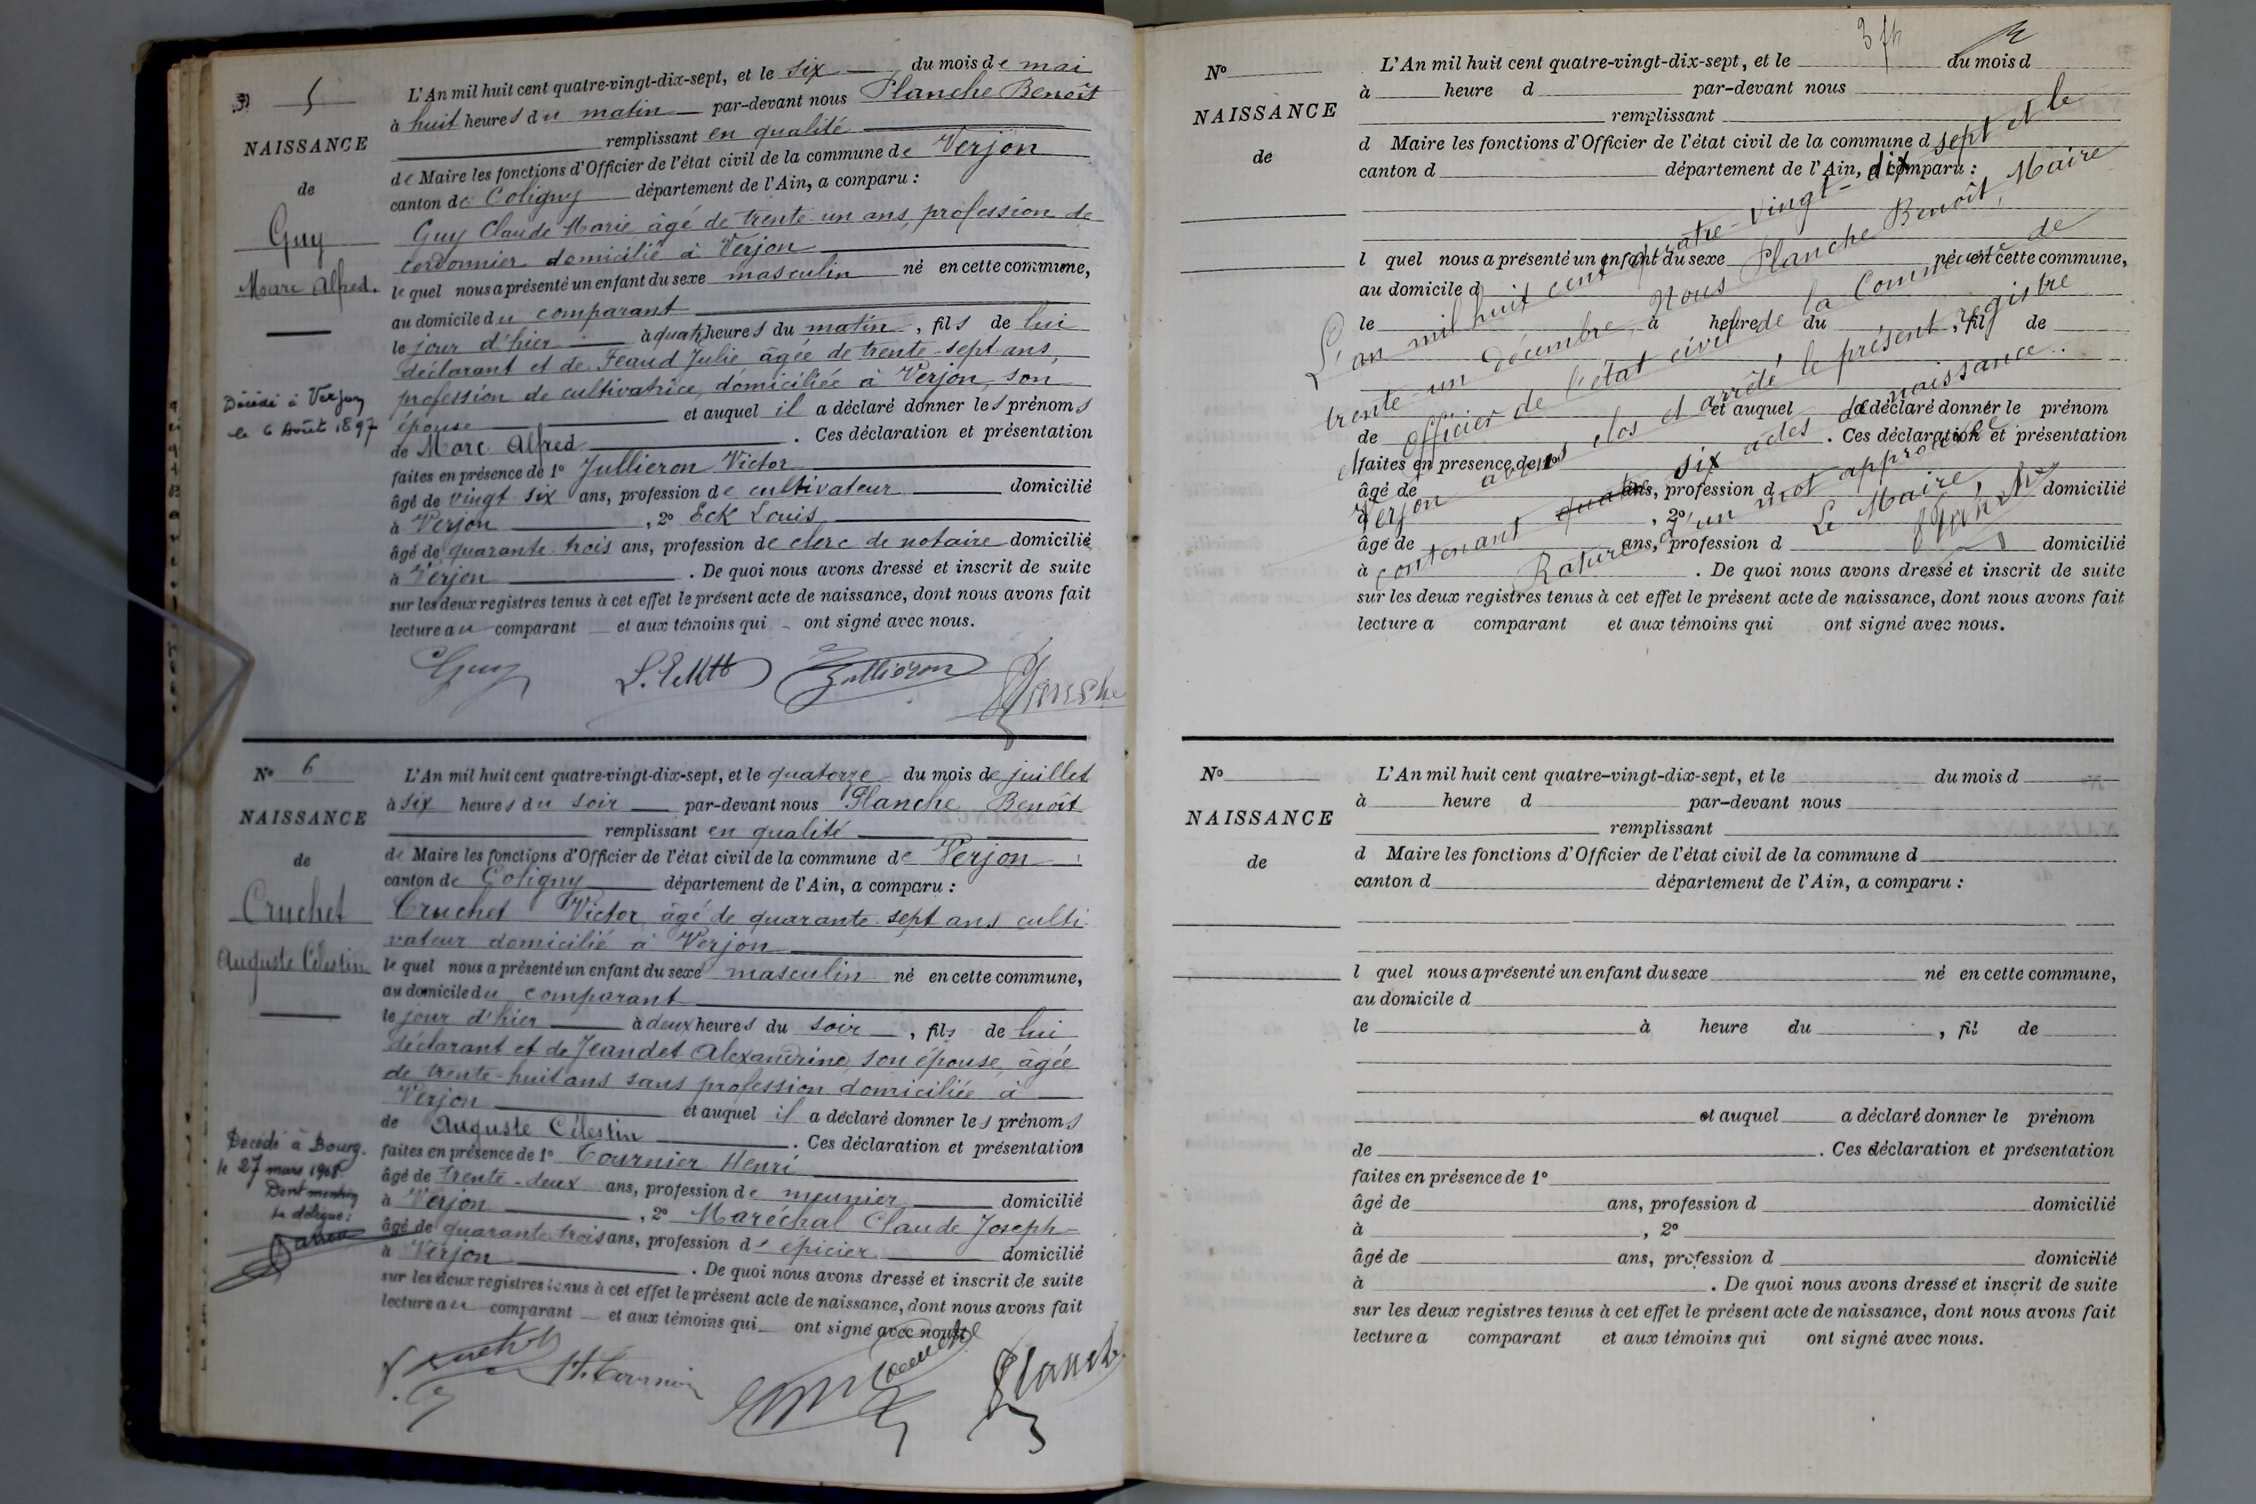 5
NAISSANCE
de
Guy
Marc Alfred.
Décédé à Verjon
le 6 Août 1897
L'An mil huit cent quatre-vingt-dix-sept, et le six du mois de mai
à huit heures du matin par-devant nous Planche Benoît
remplissant en qualité
de Maire les fonctions d'Officier de l'état civil de la commune de Verjon
canton de Coligny département de l'Ain, a comparu :
Guy Claude Marie âgé de trente-un ans, profession de
cordonnier domicilié à Verjon
lequel nous a présenté un enfant du sexe masculin né en cette commune,
au domicile du comparant
le jour d'hier à quatre heures du matin, fils de lui
déclarant et de Feaud Julie âgée de trente-sept ans,
profession de cultivatrice, domiciliée à Verjon, son
épouse et auquel il a déclaré donner les prénoms
de Marc Alfred. Ces déclaration et présentation
faites en présence de 1º Jullieron Victor
âgé de vingt six ans, profession de cultivateur domicilié
à Verjon, 2º Eck Louis
âgé de quarante-trois ans, profession de clerc de notaire domicilié
à Verjon. De quoi nous avons dressé et inscrit de suite
sur les deux registres tenus à cet effet le présent acte de naissance, dont nous avons fait
lecture au comparant et aux témoins qui ont signé avec nous.
Guy Jullieron Planche
Nº 6
NAISSANCE
de
Cruchet
Auguste Célestin
Décédé à Bourg.
le 27 mars 1968
Dont mention
Le délégué :
L'An mil huit cent quatre-vingt-dix-sept, et le quatorze du mois de juillet
à six heures du soir par-devant nous Planche Benoît
remplissant en qualité
de Maire les fonctions d'Officier de l'état civil de la commune de Verjon
canton de Coligny département de l'Ain, a comparu :
Cruchet Victor âgé de quarante-sept ans culti-
vateur domicilié à Verjon
lequel nous a présenté un enfant du sexe masculin né en cette commune,
au domicile du comparant
le jour d'hier à deux heures du soir, fils de lui
déclarant et de Jeandet Alexandrine, son épouse, âgée
de trente-huit ans sans profession domiciliée à
Verjon et auquel il a déclaré donner les prénoms
de Auguste Célestin. Ces déclaration et présentation
faites en présence de 1º Tournier Henri
âgé de trente-deux ans, profession de meunier domicilié
à Verjon, 2º Maréchal Claude Joseph
âgé de quarante trois ans, profession d'épicier domicilié
à Verjon. De quoi nous avons dressé et inscrit de suite
sur les deux registres tenus à cet effet le présent acte de naissance, dont nous avons fait
lecture au comparant et aux témoins qui ont signé avec nous.
H. Tournier Planche
Nº
NAISSANCE
de
L'An mil huit cent quatre-vingt-dix-sept, et le du mois d
à heure d par-devant nous
remplissant
d Maire les fonctions d'Officier de l'état civil de la commune d
canton d département de l'Ain, a comparu :
l quel nous a présenté un enfant du sexe né en cette commune,
au domicile d
le à heure du , fil de
et auquel a déclaré donner le prénom
de . Ces déclaration et présentation
faites en présence de 1º
âgé de ans, profession d domicilié
à , 2º
âgé de ans, profession d domicilié
à . De quoi nous avons dressé et inscrit de suite
sur les deux registres tenus à cet effet le présent acte de naissance, dont nous avons fait
lecture a comparant et aux témoins qui ont signé avec nous.
L'an mil huit cent quatre-vingt-dix sept et le
trente-un décembre, Nous Planche Benoît, Maire
officier de l'état civil de la Commune de
Verjon avons clos et arrêté le présent registre
contenant quatre six actes de naissance.
Rature d'un mot approuvée
Le Maire,
Planche
Nº
NAISSANCE
de
L'An mil huit cent quatre-vingt-dix-sept, et le du mois d
à heure d par-devant nous
remplissant
d Maire les fonctions d'Officier de l'état civil de la commune d
canton d département de l'Ain, a comparu :
l quel nous a présenté un enfant du sexe né en cette commune,
au domicile d
le à heure du , fil de
et auquel a déclaré donner le prénom
de . Ces déclaration et présentation
faites en présence de 1º
âgé de ans, profession d domicilié
à , 2º
âgé de ans, profession d domicilié
à . De quoi nous avons dressé et inscrit de suite
sur les deux registres tenus à cet effet le présent acte de naissance, dont nous avons fait
lecture a comparant et aux témoins qui ont signé avec nous.